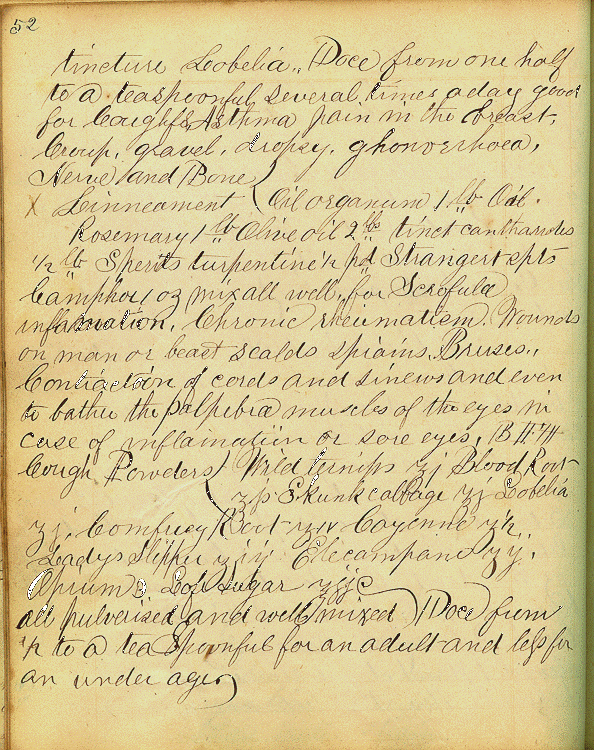 52
tincture Lobelia,, Doce from one half
to a teaspoonful several times a day good
for Coughfs Asthma pain in the breast,
Croup, gravel, dropsy, ghonorrhoea,
Nerve and Bone
X Linneament Oil organum 1 lb Oil.
Rosemary 1 lb Olive oil 2 lbs tinct cantharides
1/2 lb Sperits turpentine 1/2 pd Strangert spts
Camphor 1 oz mix all well,, for Scrofula
inflamation, Chronic rheumatism. Wounds
on man or beast scalds sprains. Bruses,,
Contraction of cords and sinews and even
to bathe the palpebra muscles of the eyes in
case of inflamation or sore eyes,
Cough Powders) Wild turnips ʒj Blood Root
Skunk cabbage ʒj Lobelia
ʒj. Comfrey Root Cayenne
Ladys Slipper Elecampane ʒij.
Opium Lof Sugar
all pulverised and well mixed Doce from
1/2 to a tea Spoonful for an adult and lefs for
an under age